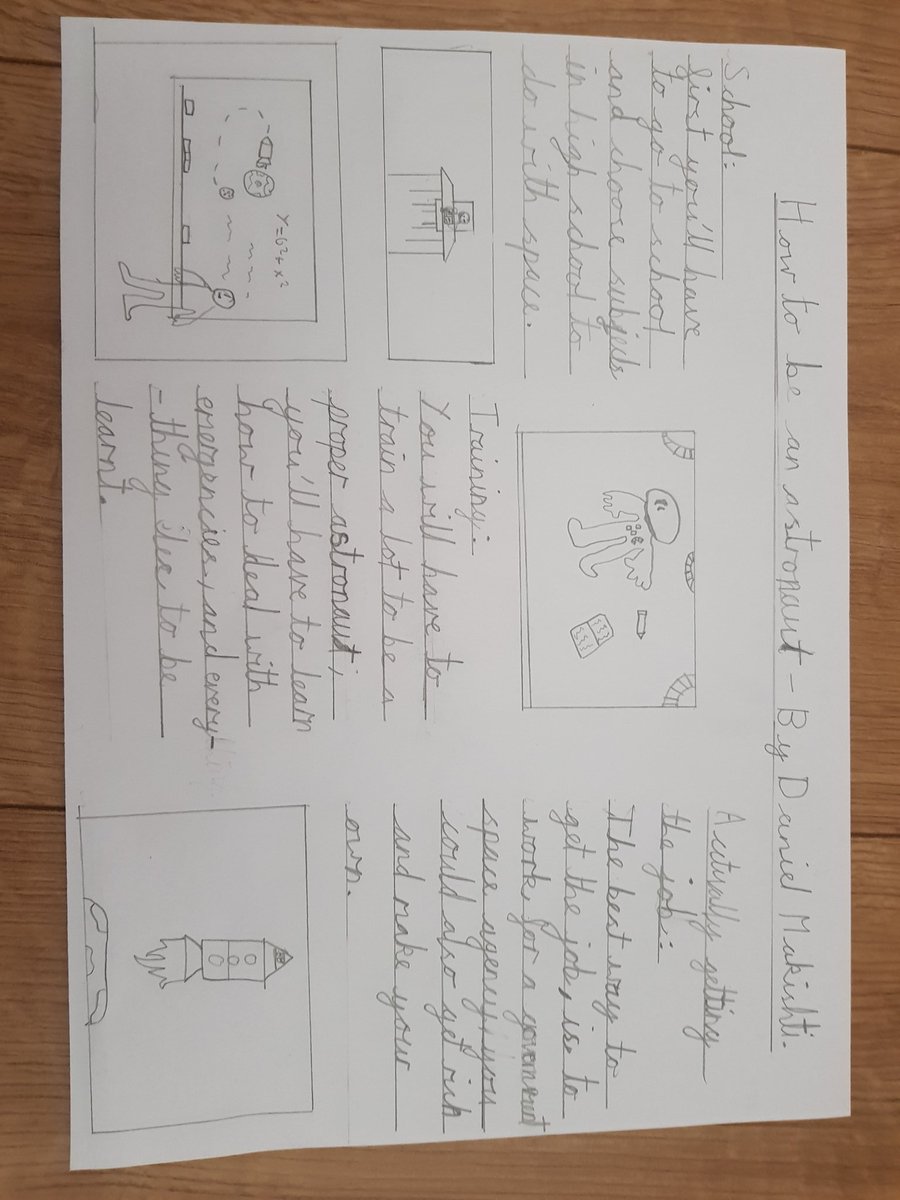 How to be an astronaut - By Daniel Makishti.
School:
first you'll have
to go to school
and choose subjects
in high school to
do with space.
Y=6²+x²
Training:
You will have to
train a lot to be a
proper astronaut,
you'll have to learn
how to deal with
emergencies, and every-
-thing else to be
learnt.
Acturally getting
the job:
The best way to
get the job, is to
work for a goverment
space agency, you
could also get rich
and make your
own.